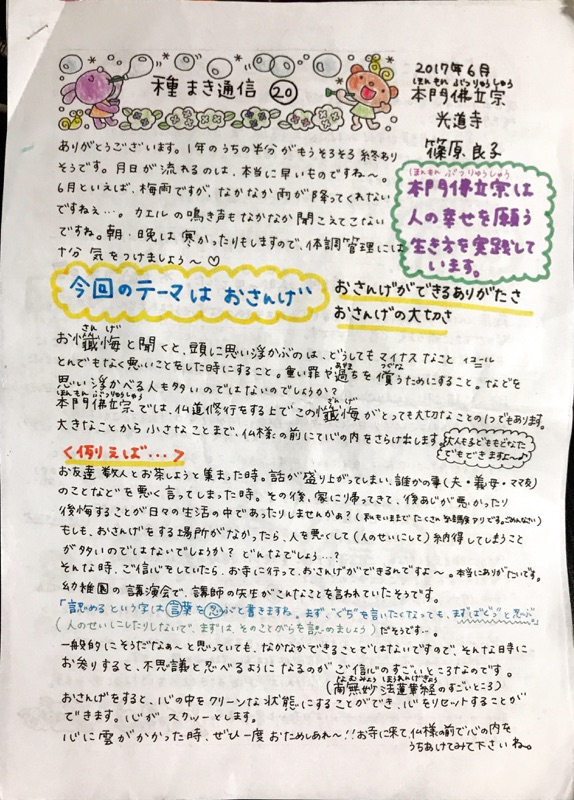 種まき通信 ⑳
2017年6月
ほんもん ぶつりゅうしゅう
本門佛立宗
光道寺
篠原 良子
ありがとうございます。1年のうちの半分がもうそろそろ終あり
そうです。月日が流れるのは、本当に早いものですね〜。
6月といえば、梅雨ですが、なかなか雨が降ってくれない
ですねぇ…。カエルの鳴き声もなかなか聞こえてこない
ですね。朝・晩は寒かったりもしますので、体調管理には
十分 気をつけましょう〜♡
ほんもん ぶつりゅうしゅう
本門佛立宗は
人の幸せを願う
生き方を実践して
います。
今回のテーマは おさんげ
おさんげができるありがたさ
おさんげの大切さ
さんげ
お懺悔と聞くと、頭に思い浮かぶのは、どうしてもマイナスなこと イコール
とんでもなく悪いことをした時にすること。重い罪や過ちを償うためにすること。などを
あやま つぐな
思い浮かべる人も多いのではないのでしょうか?
ほんもんぶつりゅうしゅう さんげ
本門佛立宗では、仏道修行をする上でこの懺悔がとっても大切なことの1つであります。
大きなことから小さなことまで、仏様の前にて心の内をさらけ出します。
大人も子どももどなた
でもできますよ〜♪
<例えば…>
お友達数人とお茶しようと集まった時。話が盛り上がってしまい、誰かの事(夫・義母・ママ友)
のことなどを悪く言ってしまった時。その後、家に帰ってきて、後あじが悪かったり
後悔することが日々の生活の中であったりしませんかぁ?(私もいままでたくさん経験アリです。ごめんなさい)
もしも、おさんげをする場所がなかったら、人を悪くして(人のせいにして)納得してしまうこと
が多いのではないでしょうか? どんなでしょう…?
そんな時、ご信心をしていたら、お寺に行って、おさんげができるんですよ〜。本当にありがたいです。
幼稚園の講演会で、講師の先生がこんなことを言われていたそうです。
「認めるという字は言葉を忍ぶと書きますね。まず、“ぐち”を言いたくなっても、まずはぐぅっと忍ぶ
(人のせいにしたりしないで、まずは、そのことがらを認めましょう)だそうです…。
一般的にそうだなぁ〜と思っていても、なかなかできることではないですので、そんな日時に
お参りすると、不思議と忍べるようになるのがご信心のすごいところなのです。
なむみょうほうれんげきょう
(南無妙法蓮華経のすごいところ)
おさんげをすると、心の中をクリーンな状態にすることができ、心をリセットすることが
できます。心がスカッーとします。
心に雲がかかった時、ぜひ一度おためしあれ〜!!お寺に来て、仏様の前で心の内を
うちあけてみて下さいね。